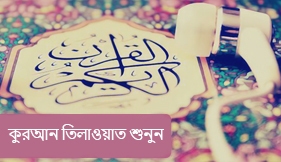 القرآن
الكريم
কুরআন তিলাওয়াত শুনুন